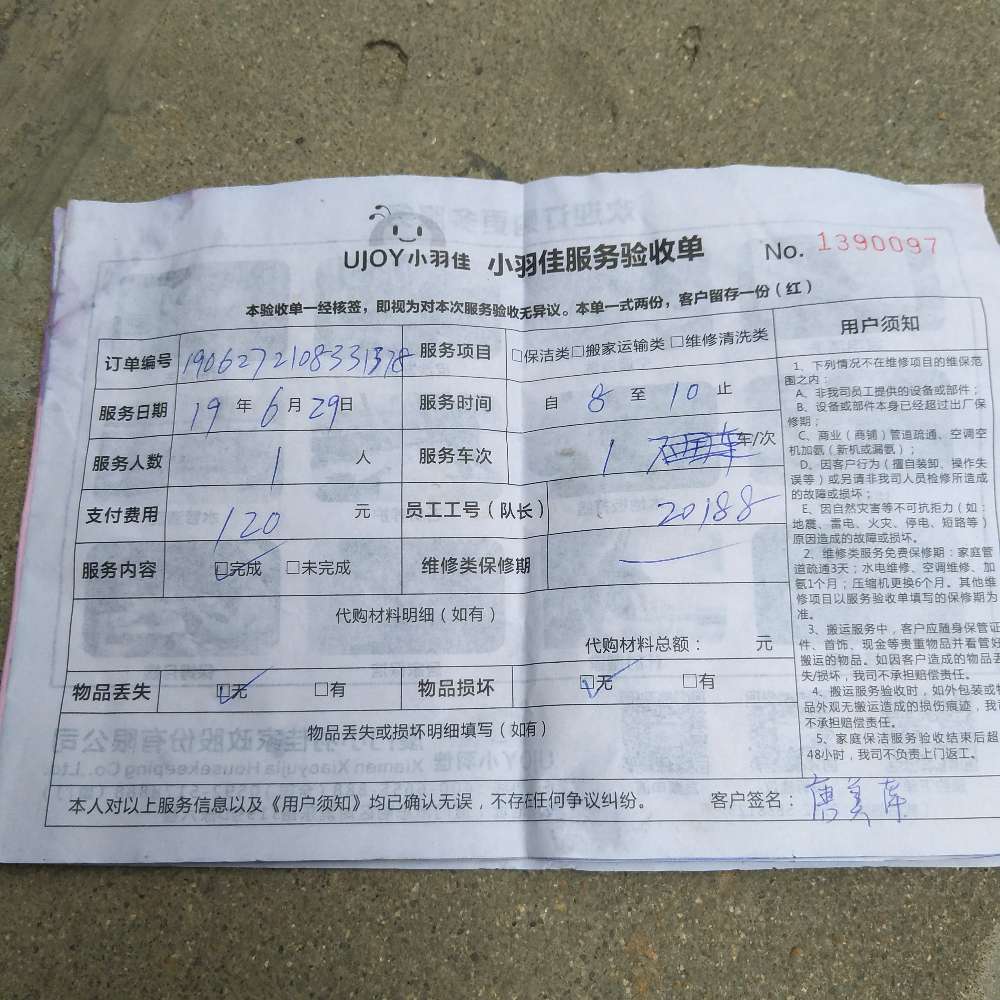 UJOY小羽佳 小羽佳服务验收单 No. 1390097
本验收单一经核签，即视为对本次服务验收无异议。本单一式两份，客户留存一份（红）
订单编号 1906272108331378 服务项目 □保洁类□搬家运输类 □维修清洗类
服务日期 19 年 6 月 29 日 服务时间 自 8 至 10 止
服务人数 1 人 服务车次 1 车/次
支付费用 120 元 员工工号（队长） 20188
服务内容 ☑完成 □未完成 维修类保修期 —
代购材料明细（如有）
代购材料总额： 元
物品丢失 ☑无 □有 物品损坏 ☑无 □有
物品丢失或损坏明细填写（如有）
本人对以上服务信息以及《用户须知》均已确认无误，不存在任何争议纠纷。 客户签名：
用户须知
1、下列情况不在维修项目的维保范
围之内：
A、非我司员工提供的设备或部件；
B、设备或部件本身已经超过出厂保
修期；
C、商业（商铺）管道疏通、空调空
机加氨（新机或漏氨）；
D、因客户行为（擅自装卸、操作失
误等）或另请非我司人员检修所造成
的故障或损坏；
E、因自然灾害等不可抗拒力（如：
地震、雷电、火灾、停电、短路等）
原因造成的故障或损坏。
2、维修类服务免费保修期：家庭管
道疏通3天；水电维修、空调维修、加
氨1个月；压缩机更换6个月。其他维
修项目以服务验收单填写的保修期为
准。
3、搬运服务中，客户应随身保管证
件、首饰、现金等贵重物品并看管好
搬运的物品。如因客户造成的物品丢
失/损坏，我司不承担赔偿责任。
4、搬运服务验收时，如外包装或物
品外观无搬运造成的损伤痕迹，我司
不承担赔偿责任。
5、家庭保洁服务验收结束后超
48小时，我司不负责上门返工。